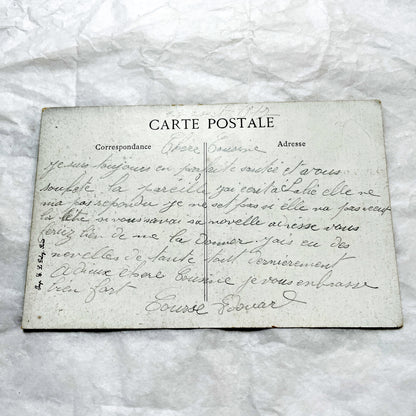 CARTE POSTALE
Correspondance
Adresse
Chere Cousine
je suis toujours en parfaite santée et vous
souhete la pareille jai ecrit a elle ne
ma pas repondu je ne set pas si elle na pas recut
la letre si vous savai sa novelle adresse vous
feriez bien de me la donner jais eu des
novelles de tante tout dernièrement
Adieux chere Cousine je vous enbrasse
bien fort
Edouard